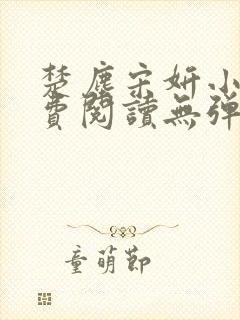 楚塵宋妍小
費閱讀無彈
童萌節